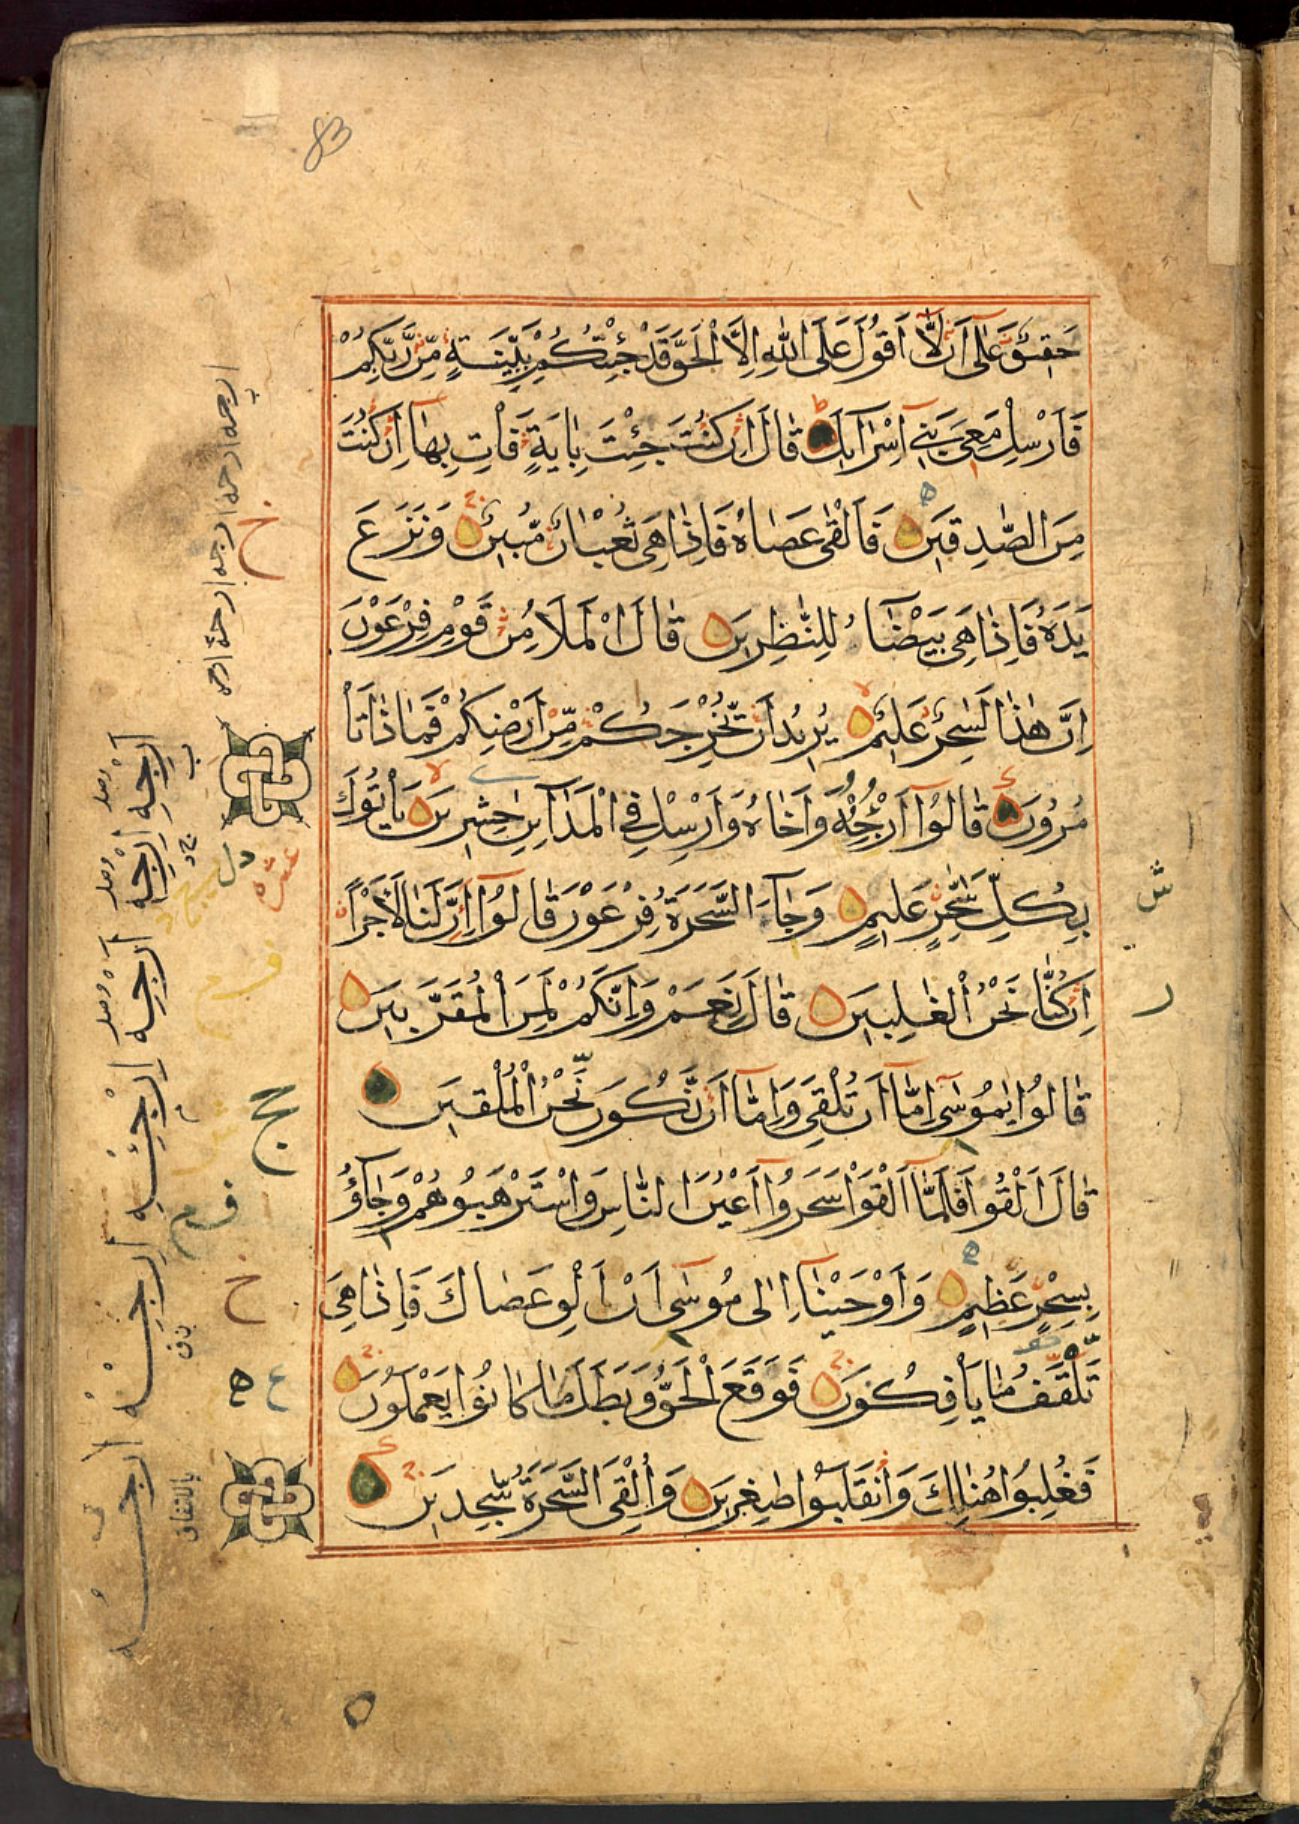 83
حَقِيقٌ عَلٰى اَنْ لَّٓا اَقُولَ عَلَى اللّٰهِ اِلَّا الْحَقَّ قَدْ جِئْتُكُمْ بِبَيِّنَةٍ مِّنْ رَّبِّكُمْ
فَاَرْسِلْ مَعِىَ بَنِىٓ اِسْرَآءِيلَ قَالَ اِنْ كُنْتَ جِئْتَ بِاٰيَةٍ فَاْتِ بِهَآ اِنْ كُنْتَ
مِنَ الصّٰدِقِينَ فَاَلْقٰى عَصَاهُ فَاِذَا هِىَ ثُعْبَانٌ مُّبِينٌ وَنَزَعَ
يَدَهُ فَاِذَا هِىَ بَيْضَآءُ لِلنّٰظِرِينَ قَالَ الْمَلَاُ مِنْ قَوْمِ فِرْعَوْنَ
اِنَّ هٰذَا لَسٰحِرٌ عَلِيمٌ يُرِيدُ اَنْ يُّخْرِجَكُمْ مِّنْ اَرْضِكُمْ فَمَاذَا تَاْ
مُرُونَ قَالُوٓا اَرْجِهْ وَاَخَاهُ وَاَرْسِلْ فِى الْمَدَآئِنِ حٰشِرِينَ يَاْتُوكَ
بِكُلِّ سٰحِرٍ عَلِيمٍ وَجَآءَ السَّحَرَةُ فِرْعَوْنَ قَالُوٓا اِنَّ لَنَا لَاَجْرًا
اِنْ كُنَّا نَحْنُ الْغٰلِبِينَ قَالَ نَعَمْ وَاِنَّكُمْ لَمِنَ الْمُقَرَّبِينَ
قَالُوا يٰمُوسٰىٓ اِمَّآ اَنْ تُلْقِىَ وَاِمَّآ اَنْ نَّكُونَ نَحْنُ الْمُلْقِينَ
قَالَ اَلْقُوا فَلَمَّآ اَلْقَوْا سَحَرُوٓا اَعْيُنَ النَّاسِ وَاسْتَرْهَبُوهُمْ وَجَآؤُ
بِسِحْرٍ عَظِيمٍ وَاَوْحَيْنَآ اِلٰى مُوسٰىٓ اَنْ اَلْقِ عَصَاكَ فَاِذَا هِىَ
تَلْقَفُ مَا يَاْفِكُونَ فَوَقَعَ الْحَقُّ وَبَطَلَ مَا كَانُوا يَعْمَلُونَ
فَغُلِبُوا هُنَالِكَ وَانْقَلَبُوا صٰغِرِينَ وَاُلْقِىَ السَّحَرَةُ سٰجِدِينَ
عشره
بالاتفاق